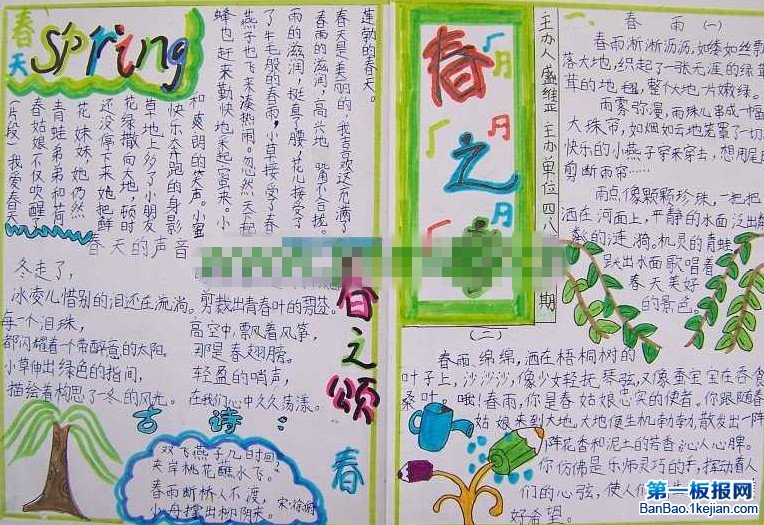 春天
Spring
蓬勃的春天。
春天是美丽的，我喜欢这充满了
春雨的滋润，高兴地
雨的滋润，挺直了腰，花儿接受了
了牛毛般的春雨，小草接受了春
燕子也飞来凑热闹。忽然天下起
蜂也赶来勤快地采起蜜来。小
和爽朗的笑声。小蜜
快乐奔跑的身影
草地上多了小朋友
花绿撒向大地，顿时
还没停下来，她把鲜
花妹妹，她仍然
青蛙弟弟和荷
春姑娘不仅吹醒
(片段)我爱春天
春天的声音
冬走了，
冰变儿惜别的泪还在流淌。
每一个泪珠，
都闪耀着一带醉意的太阳。
小草伸出绿色的指间，
描绘着构思了一冬的风光。
剪裁出青春叶的
高空中，飘风着风筝，
那是春翅膀。
轻盈的哨声，
在我们心中久久荡漾。
春之颂
春
古诗：
双飞燕子几时回？
夹岸桃花蘸水飞。
春雨断桥人不渡，
小舟撑出柳阴来。
宋·徐俯
春之
主办人
主办单位四八
期
一、
春雨(一)
春雨淅淅沥沥，如缕如丝飘
落大地，织起了一张无涯的绿
茸的地毯，整个大地一片嫩绿。
雨雾弥漫，雨珠儿串成一幅
大珠帘，如烟如云地笼罩了一切
快乐的小燕子穿来穿去，想用尾
剪断雨帘……
雨点像颗颗珍珠，一把把
洒在河面上，平静的水面泛出
的涟漪。机灵的青蛙
跃出水面歌唱着
春天美好
的景色。
(二)
春雨绵绵，洒在梧桐树的
叶子上，沙沙沙，像少女轻抚琴弦，又像蚕宝宝在吞食
桑叶。哦！春雨，你是春姑娘忠实的使者。你跟随春
姑娘来到大地，大地便生机勃勃，散发出一阵
阵花香和泥土的芳香沁人心脾。
你仿佛是乐师灵巧的手，挥动着人
们的心弦，使人们
好希望。
第一板报网
BanBao.1kejian.com